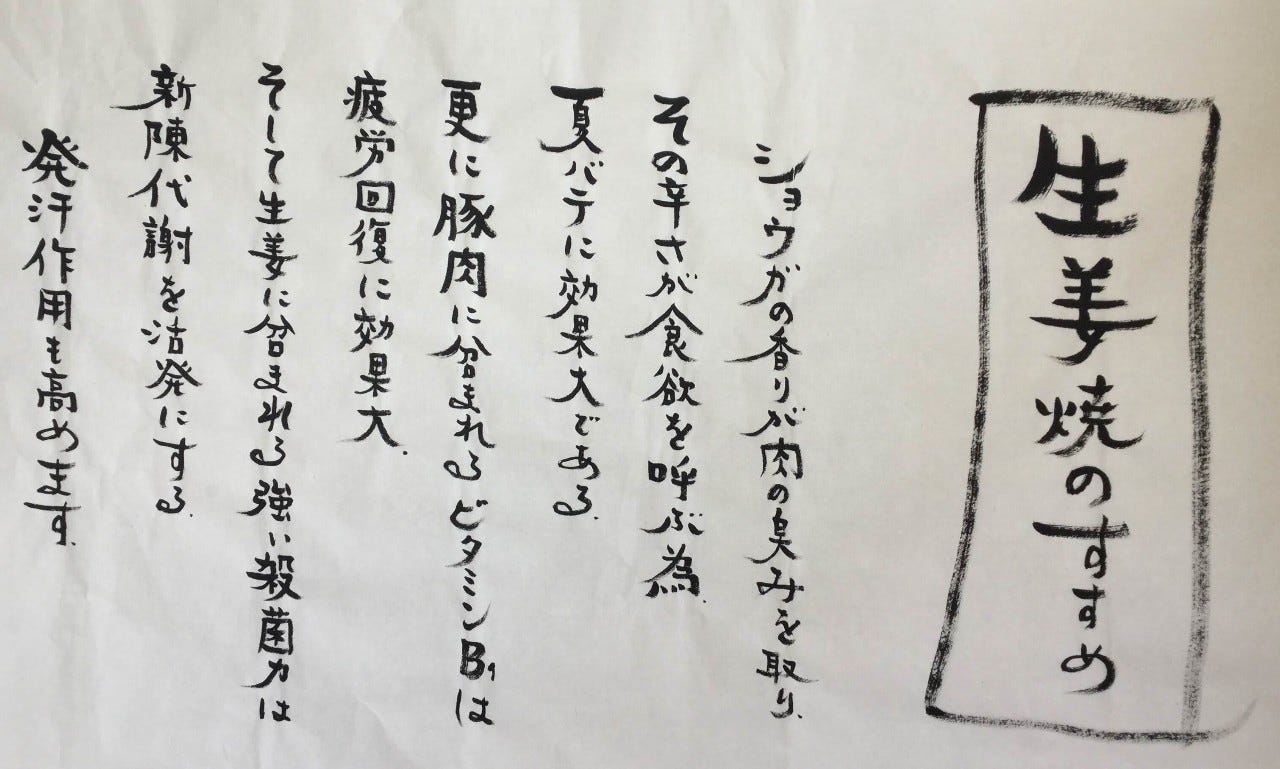 生姜焼のすすめ
ショウガの香りが肉の臭みを取り、
その辛さが食欲を呼ぶ為、
夏バテに効果大である。
更に豚肉に含まれるビタミンB1は
疲労回復に効果大。
そして生姜に含まれる強い殺菌力は
新陳代謝を活発にする。
発汗作用も高めます。